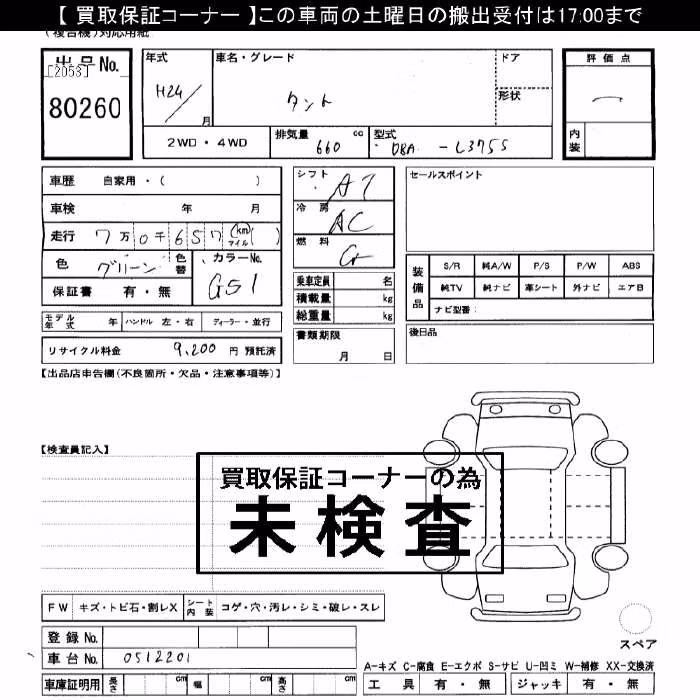 【 買取保証コーナー 】この車両の土曜日の搬出受付は17:00まで
(複合機)対応用紙
出品No.
[2053]
80260
年式
H24/
月
車名・グレード
タント
ドア
形状
評価点
内装
2WD・4WD
排気量
660
cc
型式
DBA-L375S
車歴 自家用・( )
車検 年 月
走行 7万0千657 (km マイル)( )
色 グリーン 色替
カラーNo.
G51
保証書 有・無
シフト AT
冷房 AC
燃料 G
乗車定員 名
積載量 kg
総重量 kg
書類期限
月 日
セールスポイント
装備品
S/R 純A/W P/S P/W ABS
純TV 純ナビ 革シート 外ナビ エアB
ナビ型番:
モデル年式 年 ハンドル 左・右 ディーラー・並行
リサイクル料金 9,200 円 預託済
後日品
【出品店申告欄(不良箇所・欠品・注意事項等)】
【検査員記入】
買取保証コーナーの為
未検査
FW キズ・トビ石・割レX シート内装 コゲ・穴・汚レ・シミ・破レ・スレ
登録No.
車台No. 0512201
車庫証明用 長さ cm 幅 cm 高さ cm
スペア
A−キズ C−腐食 E−エクボ S−サビ U−凹ミ W−補修 XX−交換済
工具 有・無 ジャッキ 有・無